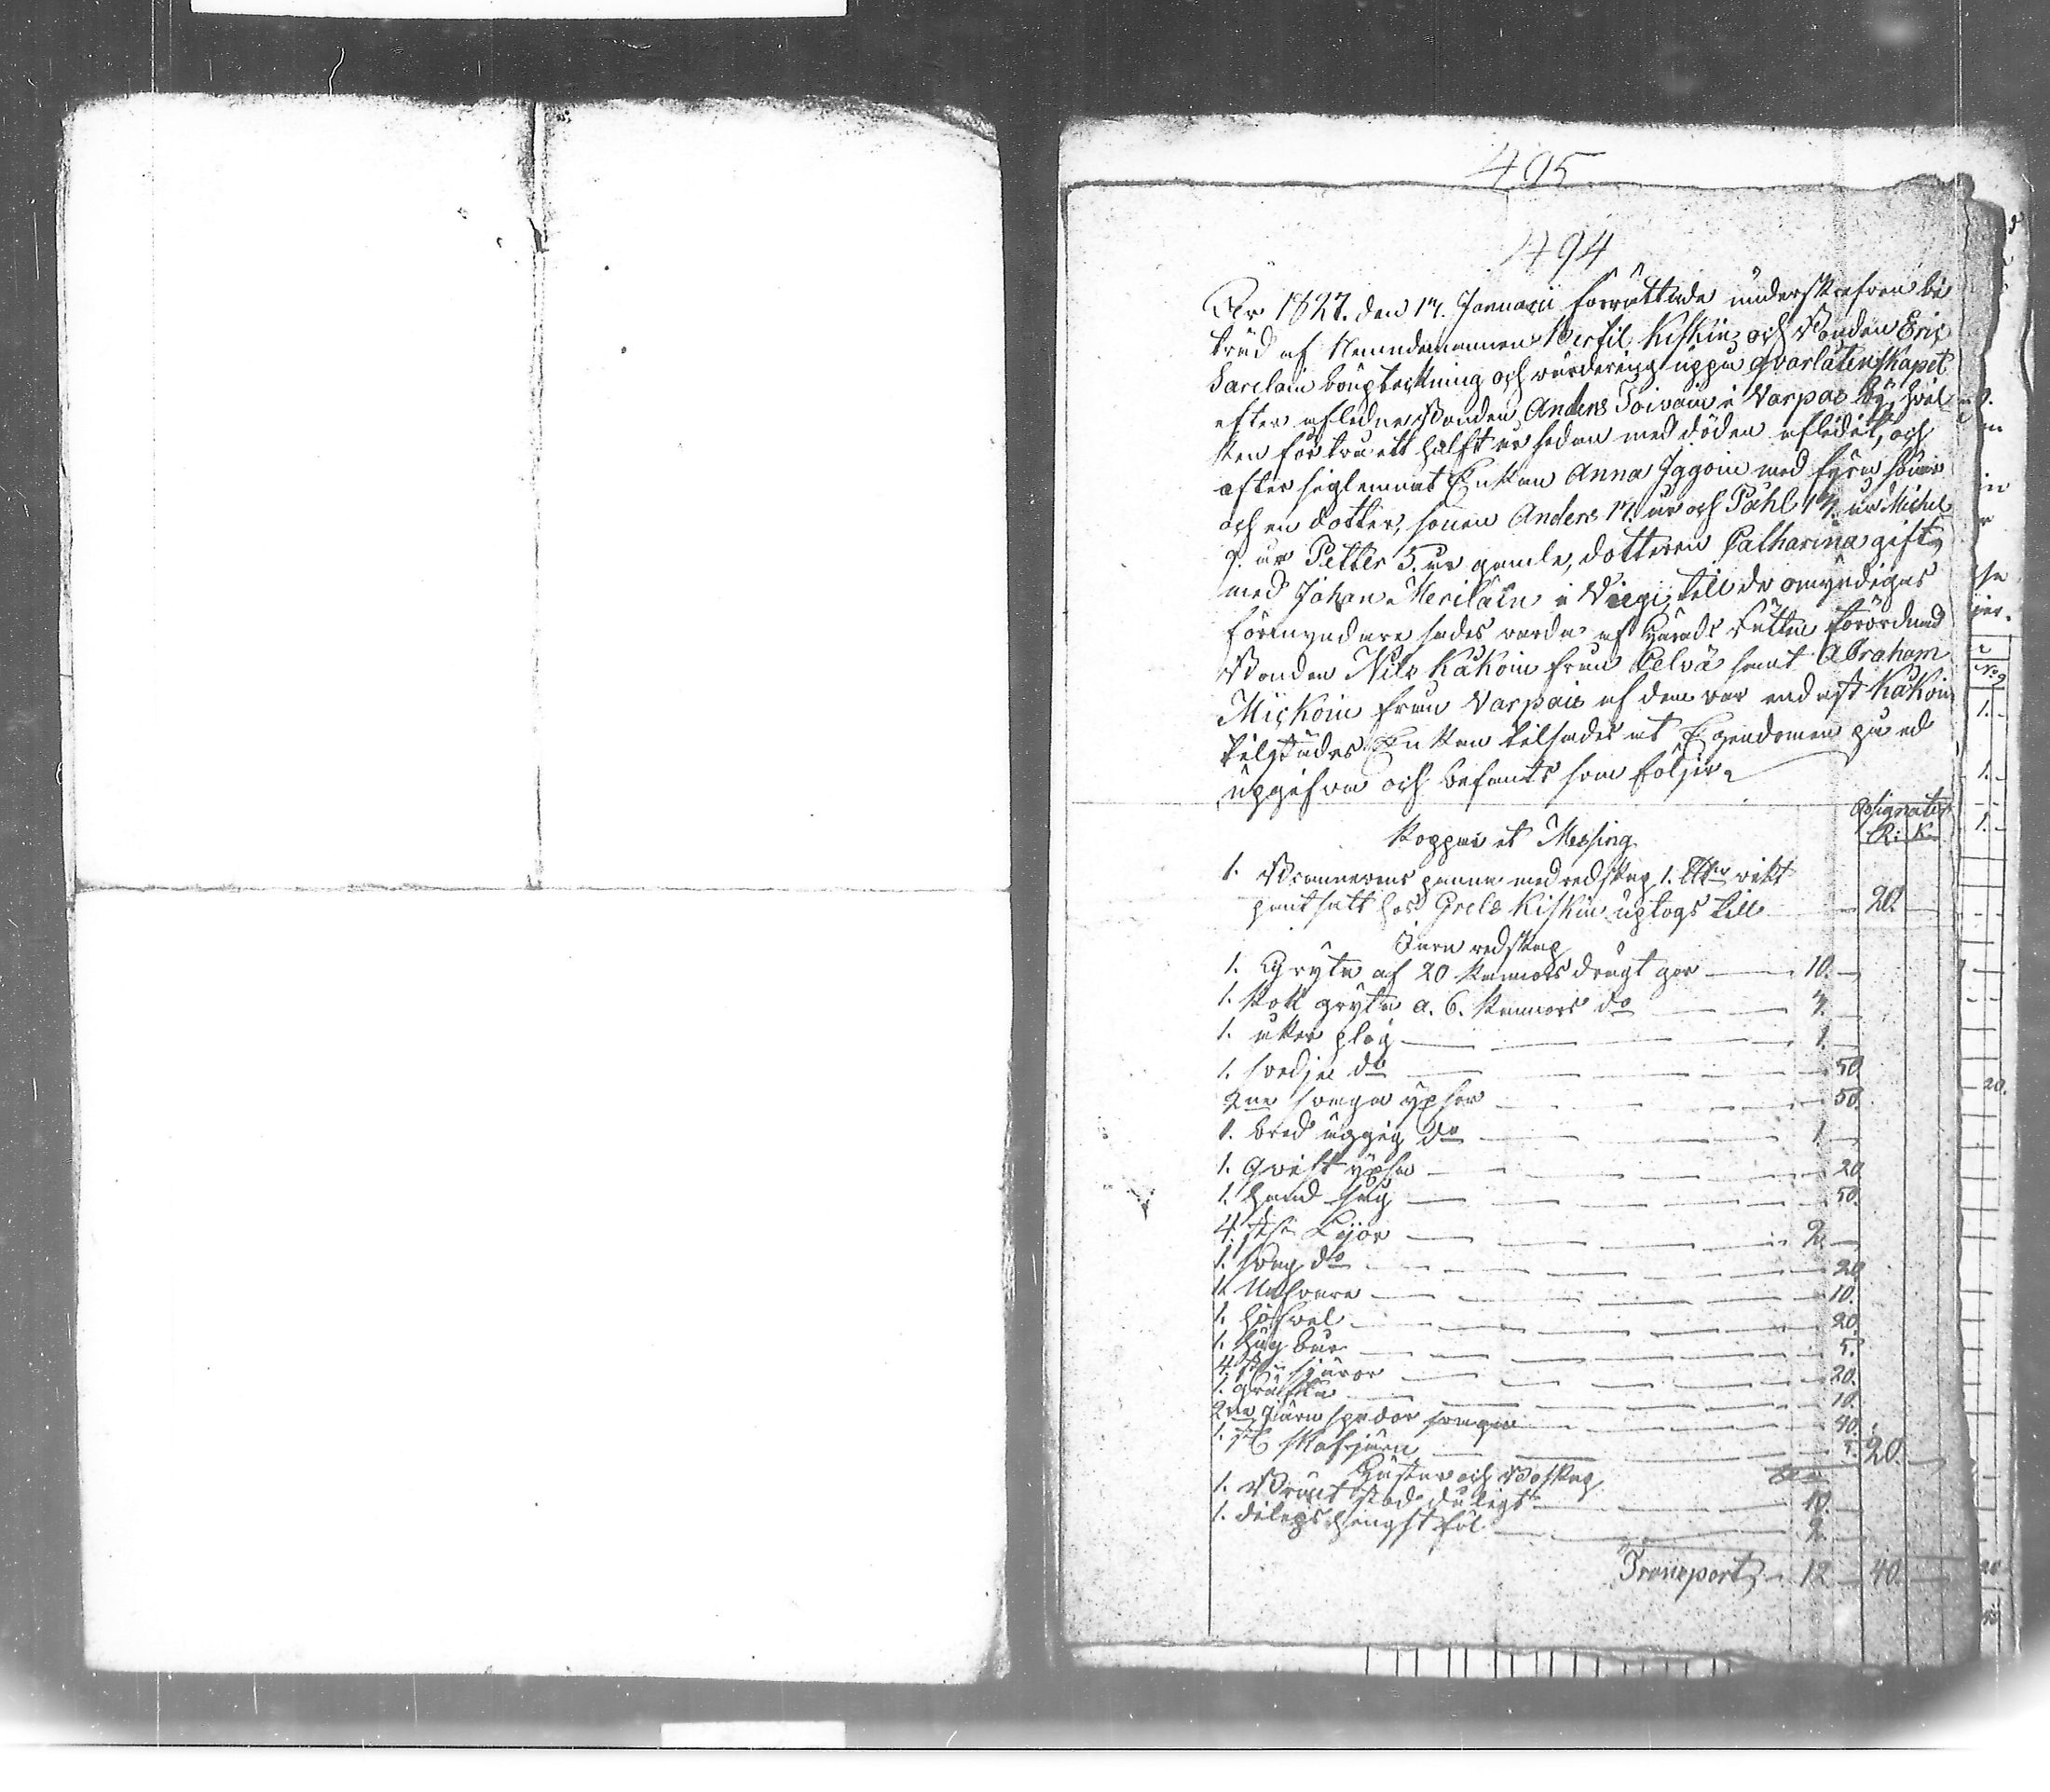 495
494
År 1827. den 17. Januarii förrättade underskrefven bi
träd af Nemndemannen Bertil Kiskin och Bonden Eric
Sarelain bouptekning och värdering uppå qvarlåtenskapet
efter aflednes Bonden Anders Toivain i Varpas by, hvil
ken för tru ett halft år sedan med döden aflidit, och
efter sig lemnat Enkan Anna Iggoin med fyra söner
och en dotter, sonen Anders 17. år och Pahl 13. år Michel
9. år Petter 5. år gamle, dotteren Catharina gift
med Johan Merilain i Viegi, till de omyndigas
förmyndare sades varda af Härads Rätten förordnad
Bonden Nils Kakoin från Celvä samt Abraham
Mickoin från Varpais af dem var endast Kakoin
tilstädes Enkan tilsades at Egendomen på ed
upgifva och befants som följer
Assignater
R: K.
Koppar et Messing
1. Brännvins panna med redskap 1. vikt
pantsatt hos Grels Kiskin uptogs till 20.
Järn redskap
1. Gryta af 20 kannors drägt gar 10.
1. Kok gryta a. 6. kannors do 3.
1. åker plog 1.
1. svedje do 50
2ne svaga yxser 50.
1. bred äggig do 1.
1. qvist yxsa 20
1. hand såg 50.
4. st Lijor 2
1. svag do 20
1. Nafvare 10.
1. höfvel 20.
1. hug bur 5.
4. st skjäror 20.
1. gräfta 10.
2ne Järn spador svaga 40.
1. st skafjärn 5. 20
Hästar och Boskap
1. Brunt stod duligt 10.
1. dilegs hingst föl 2
Transport 12 40.